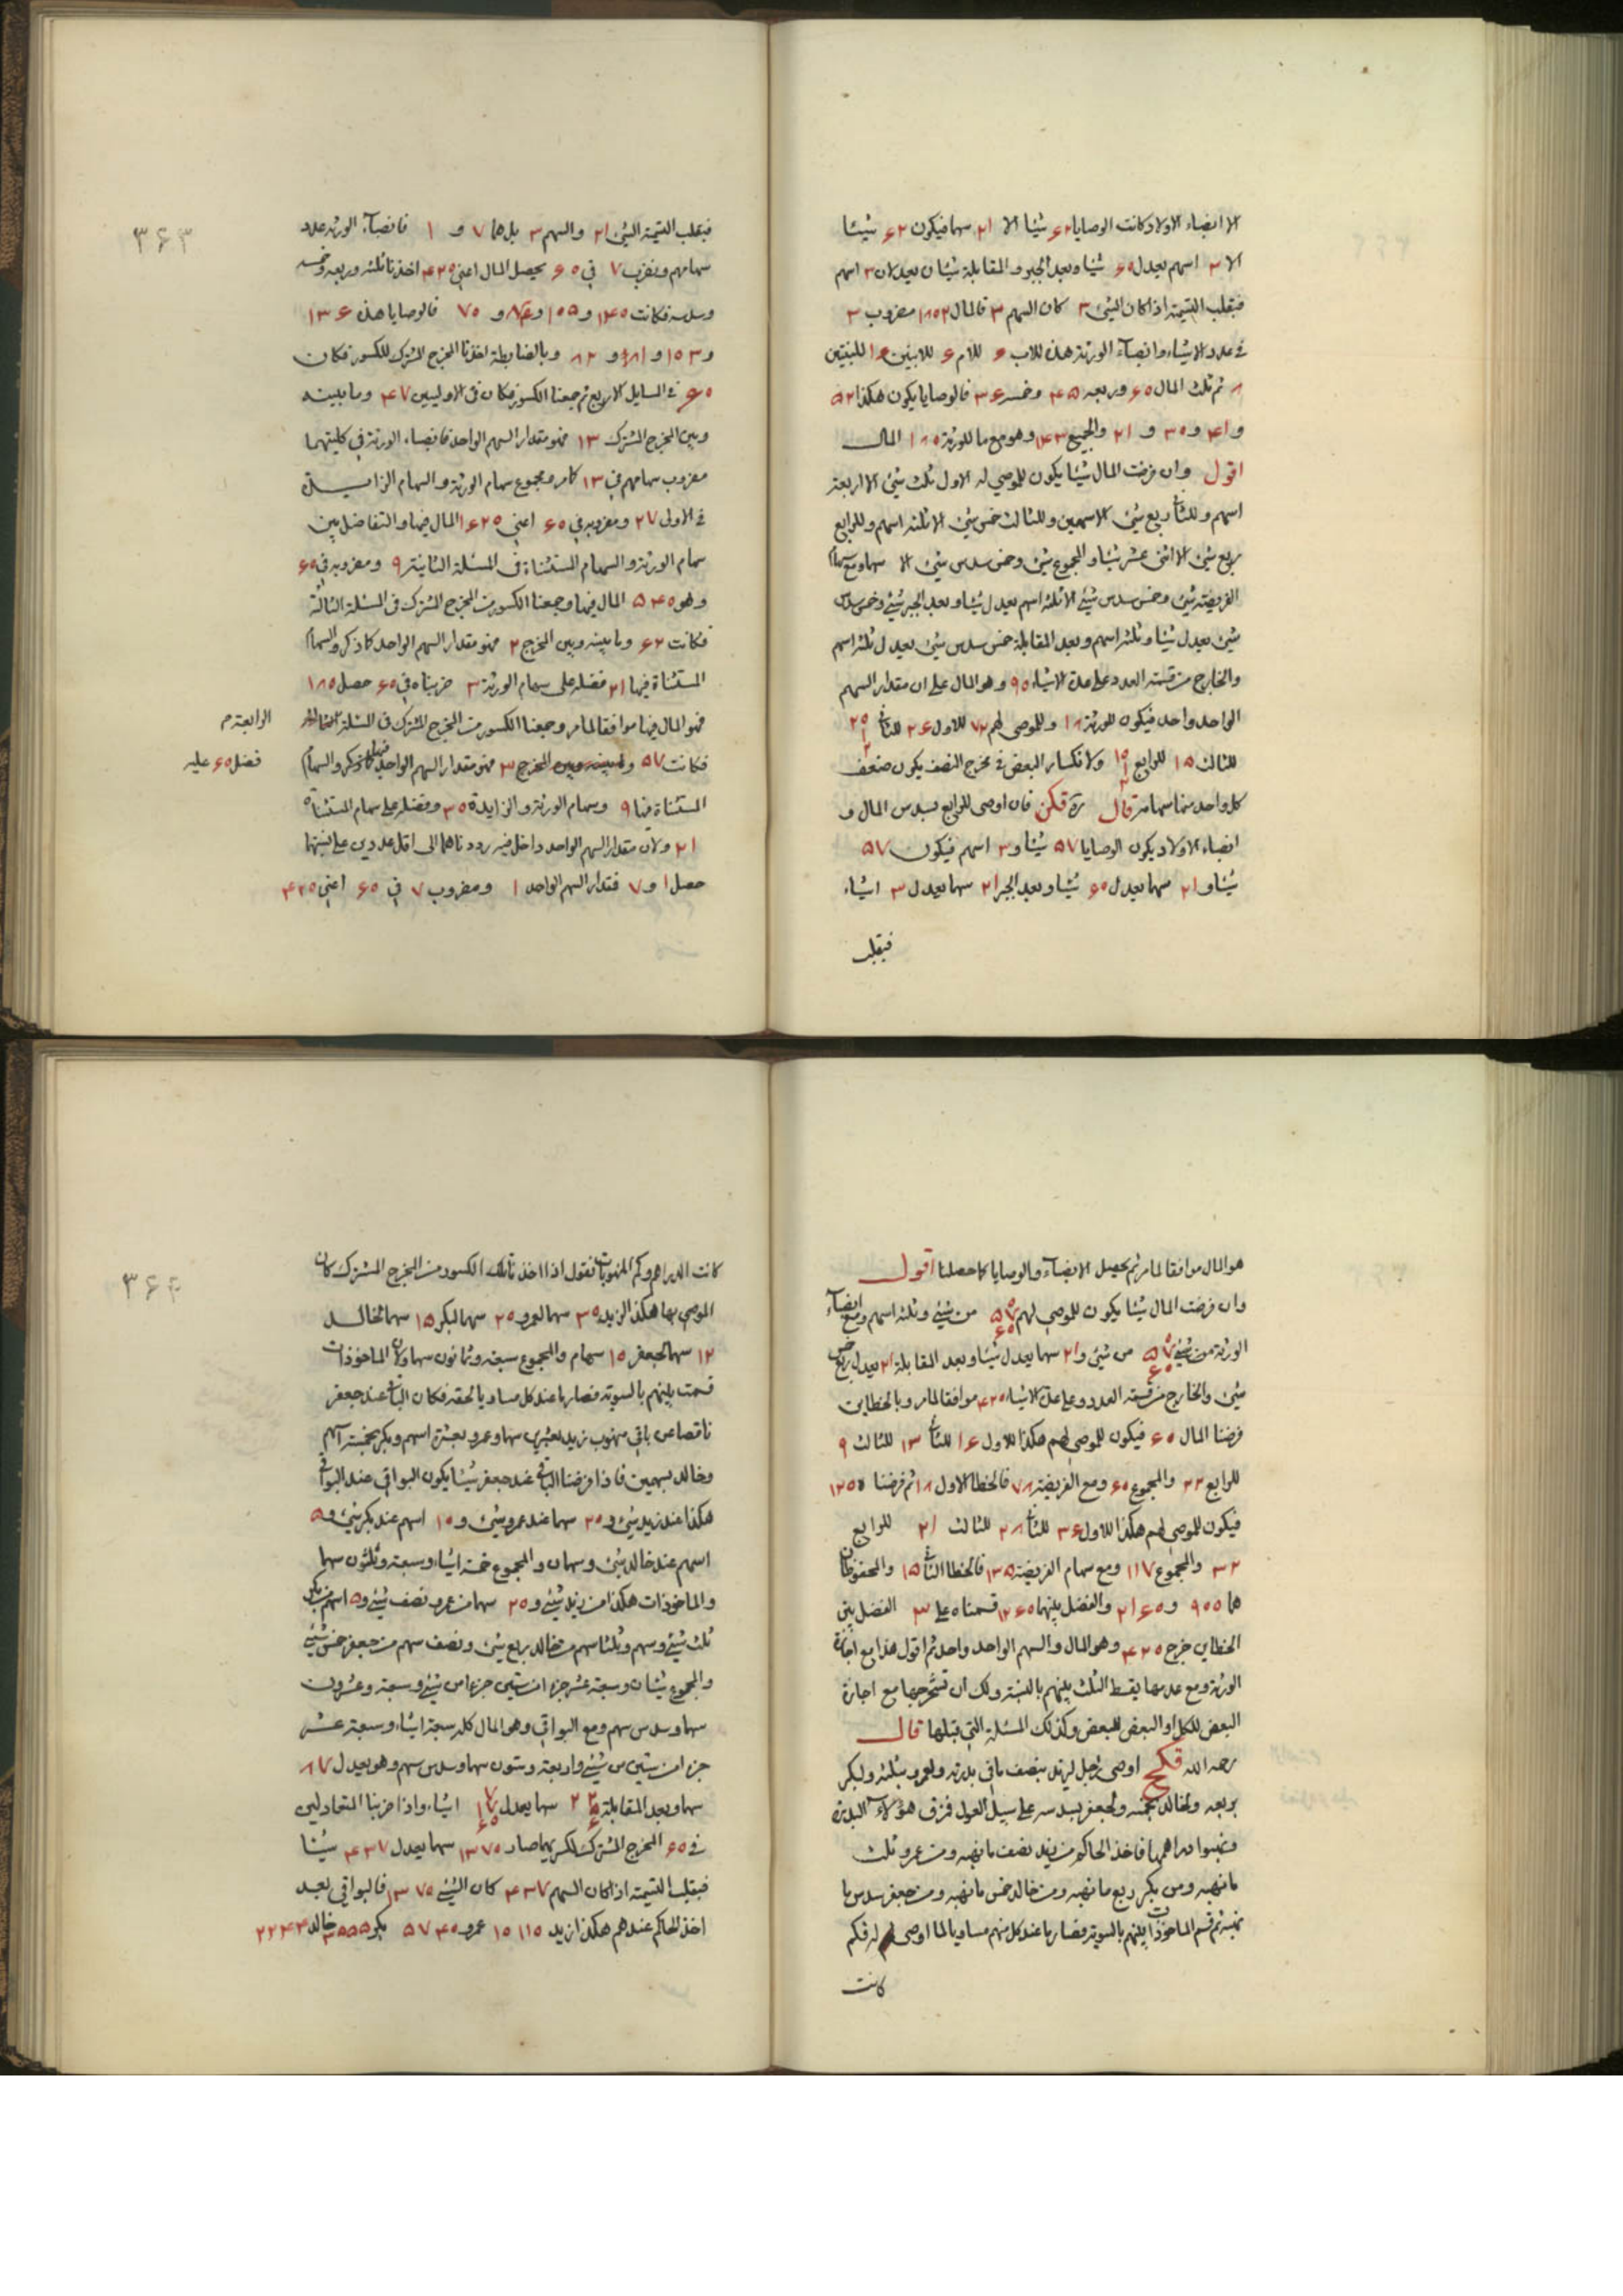 الا انصباء الاولاد كانت الوصايا ۶۲ شيئا الا ۲۱ سهما فيكون ۶۲ شيئا
الا ۳ اسهم يعدل ۶۰ شيئا وبعد الجبر والمقابلة شيئان يعدلان ۳ اسهم
فبقلب القسمة اذا كان الشئ ۳ كان السهم ۲ فالمال ۱۸۰ مضروب ۳
في عدد الاشياء وانصباء الورثة هذه للاب للام للابنين للبنتين
ثم ثلث المال ۶۰ وربعه ۴۵ وخمسه ۳۶ فالوصايا يكون هكذا ۵۲
و ۴۱ و ۳۰ و ۲۱ والجميع وهو مع ما للورثة ۱۸۰ المال
اقول وان فرضت المال شيئا يكون للموصي له الاول ثلث شئ الا اربعة
اسهم وللثاني ربع شئ الا سهمين وللثالث خمس شئ الا ثلثة اسهم وللرابع
ربع شئ الا اثني عشر شيئا والمجموع شئ وخمس سدس شئ الا سهما ومع سهام
الفريضة شئ وخمس سدس شئ الا ثلثة اسهم يعدل شيئا وبعد الجبر شئ وخمس سدس
شئ يعدل شيئا وثلثة اسهم وبعد المقابلة خمس سدس شئ يعدل ثلثة اسهم
والخارج من قسمة العدد على عدة الاشياء ۹۰ وهو المال على ان مقدار السهم
الواحد واحد فيكون للورثة ۱۸ وللموصى لهم ۷۲ للاول ۲۶ للثاني ۲۰
للثالث ۱۵ للرابع ۱۰ ولانكسار البعض في مخرج النصف يكون ضعف
كل واحد منها سهاما مر قال ره قكز فان اوصى للرابع بسدس المال و
انصباء الاولاد يكون الوصايا ۵۷ شيئا و ۳ اسهم فيكون ۵۷
شيئا و ۲۱ سهما يعدل ۶۰ شيئا وبعد الجبر ۲۱ سهما يعدل ۳ اشياء
فبقلب
۳۶۳
فبقلب القسمة الشئ ۲۱ والسهم ۳ بل هما ۷ و ۱ فانصباء الورثة عدد
سهامهم وبضرب ۷ في ۶۰ يحصل المال اعني ۴۲۰ اخذنا ثلثه وربعه وخمسه
وسدسه فكانت ۱۴۰ و ۱۰۵ و ۸۴ و ۷۰ فالوصايا هذه ۱۳۶
و ۱۰۳ و ۸۱ و ۸۲ وبالضابطة اخذنا المخرج المشترك للكسور فكان
۶۰ في المسايل الاربع ثم جمعنا الكسور فكان في الاوليين ۴۷ وما بينه
وبين المخرج المشترك ۱۳ فهو مقدار السهم الواحد فانصباء الورثة في كليتهما
مضروب سهامهم في ۱۳ كما مر ومجموع سهام الورثة والسهام الزايدة
في الاولى ۲۷ ومضروبه في ۶۰ اعني ۱۶۲۰ المال فيها والتفاضل بين
سهام الورثة والسهام المستثناة في المسئلة الثانية ۹ ومضروبه في ۶۰
وهو ۵۴۰ المال فيها وجمعنا الكسور من المخرج المشترك في المسئلة الثالثة
فكانت ۶۲ وما بينه وبين المخرج ۲ فهو مقدار السهم الواحد كما ذكر والسهام
المستثناة فيها ۲۱ فضله على سهام الورثة ۳ ضربناه في ۶۰ حصل ۱۸۰
فهو المال فيها موافقا لما مر وجمعنا الكسور من المخرج المشترك في المسئلة الثالثة
الرابعة م
فكانت ۵۷ وما بينه وبين المخرج ۳ فهو مقدار السهم الواحد فيها كما ذكر والسهام
فضل ۶۰ عليه
المستثناة فيها ۹ وسهام الورثة والزايدة ۳۰ وفضله على سهام المستثناة
۲۱ ولان مقدار السهم الواحد داخل فيه رددناهما الى اقل عددين على نسبتهما
حصل ۱ و ۷ فمقدار السهم الواحد ۱ ومضروب ۷ في ۶۰ اعني ۴۲۰
هو المال موافقا لما مر ثم يحصل الانصباء والوصايا كما حصلنا اقول
وان فرضت المال شيئا يكون للموصي لهم ۵۷ ۶۰ من شئ وثلثة اسهم ومع انصباء
الورثة ۵۷ ۶۰ من شئ و ۲۱ سهما يعدل شيئا وبعد المقابلة ۲۱ يعدل ربع خمس
شئ والخارج من قسمة العدد على عدة الاشياء ۴۲۰ موافقا لما مر وبالخطاين
فرضنا المال ۶۰ فيكون للموصى لهم هكذا للاول ۱۶ للثاني ۱۳ للثالث ۹
للرابع ۲۲ والمجموع ۶۰ ومع الفريضة ۷۸ فالخطا الاول ۱۸ ثم فرضنا ۱۲۰
فيكون للموصى لهم هكذا للاول ۳۶ للثاني ۲۸ للثالث ۲۱ للرابع
۳۲ والمجموع ۱۱۷ ومع سهام الفريضة ۱۳۵ فالخطا الثاني ۱۵ والمحفوظان
هما ۹۰۰ و ۲۱۶۰ والفضل بينهما ۱۲۶۰ قسمناه على ۳ الفضل بين
الخطاين خرج ۴۲۰ وهو المال والسهم الواحد واحد ثم اقول هذا مع اجازة
الورثة ومع عدمها يقسط الثلث بينهم بالنسبة ولك ان تستخرجها مع اجازة
البعض للكل او البعض للبعض وكذلك المسئلة التي قبلها قال
رحمه الله قكح اوصى رجل لزيد بنصف باقي بدرته ولعمرو بثلثه ولبكر
بربعه ولخالد بخمسه ولجعفر بسدسه على سبيل العول فزق هؤلاء البدرة
ونهبوا دراهمها فاخذ الحاكم من زيد نصف ما نهبه ومن عمرو ثلث
ما نهبه ومن بكر ربع ما نهبه ومن خالد خمس ما نهبه ومن جعفر سدس ما
نهبه ثم قسم الماخوذات بينهم بالسوية فصار ما عند كل منهم مساويا لما اوصى له فكم
كانت
۳۶۴
كانت الدراهم وكم المنهوبات نقول اذا اخذنا تلك الكسور من المخرج المشترك كان
الموصى بها هكذا لزيد ۳۰ سهما لعمرو ۲۰ سهما لبكر ۱۵ سهما لخالد
۱۲ سهما لجعفر ۱۰ سهام والمجموع سبعة وثمانون سهما ولان الماخوذات
قسمت بينهم بالسوية فصار ما عند كل مساويا لحقه فكان الباقي عند جعفر
ناقصا عن باقي منهوب زيد بعشرين سهما وعمرو بعشرة اسهم وبكر بخمسة اسهم
وخالد بسهمين فاذا فرضنا الباقي عند جعفر شيئا يكون البواقي عند البواقي
هكذا عند زيد شئ و ۲۰ سهما عند عمرو شئ و ۱۰ اسهم عند بكر شئ و ۵
اسهم عند خالد شئ وسهمان والمجموع خمسة اشياء وسبعة وثلثون سهما
والماخوذات هكذا من زيد شئ و ۲۰ سهما من عمرو نصف شئ و ۵ اسهم من بكر
ثلث شئ وسهم وثلثا سهم من خالد ربع شئ ونصف سهم من جعفر خمس شئ
والمجموع شيئان وسبعة عشر جزءا من ستين جزءا من شئ وسبعة وعشرون
سهما وسدس سهم ومع البواقي وهو المال كله سبعة اشياء وسبعة عشر
جزءا من ستين من شئ واربعة وستون سهما وسدس سهم وهو يعدل ۸۷
سهما وبعد المقابلة ۲۲ سهما يعدل ۷ اشياء واذا ضربنا المتعادلين
في ۶۰ المخرج المشترك لكسريهما صار ۱۳۷۰ سهما يعدل ۴۳۷ شيئا
فبقلب القسمة اذا كان السهم ۴۳۷ كان الشئ ۱۳۷۰ فالبواقي بعد
اخذ الحاكم عندهم هكذا زيد ۱۰۱۱۰ عمرو ۵۷۴۰ بكر ۳۵۵۵ خالد ۲۲۴۴